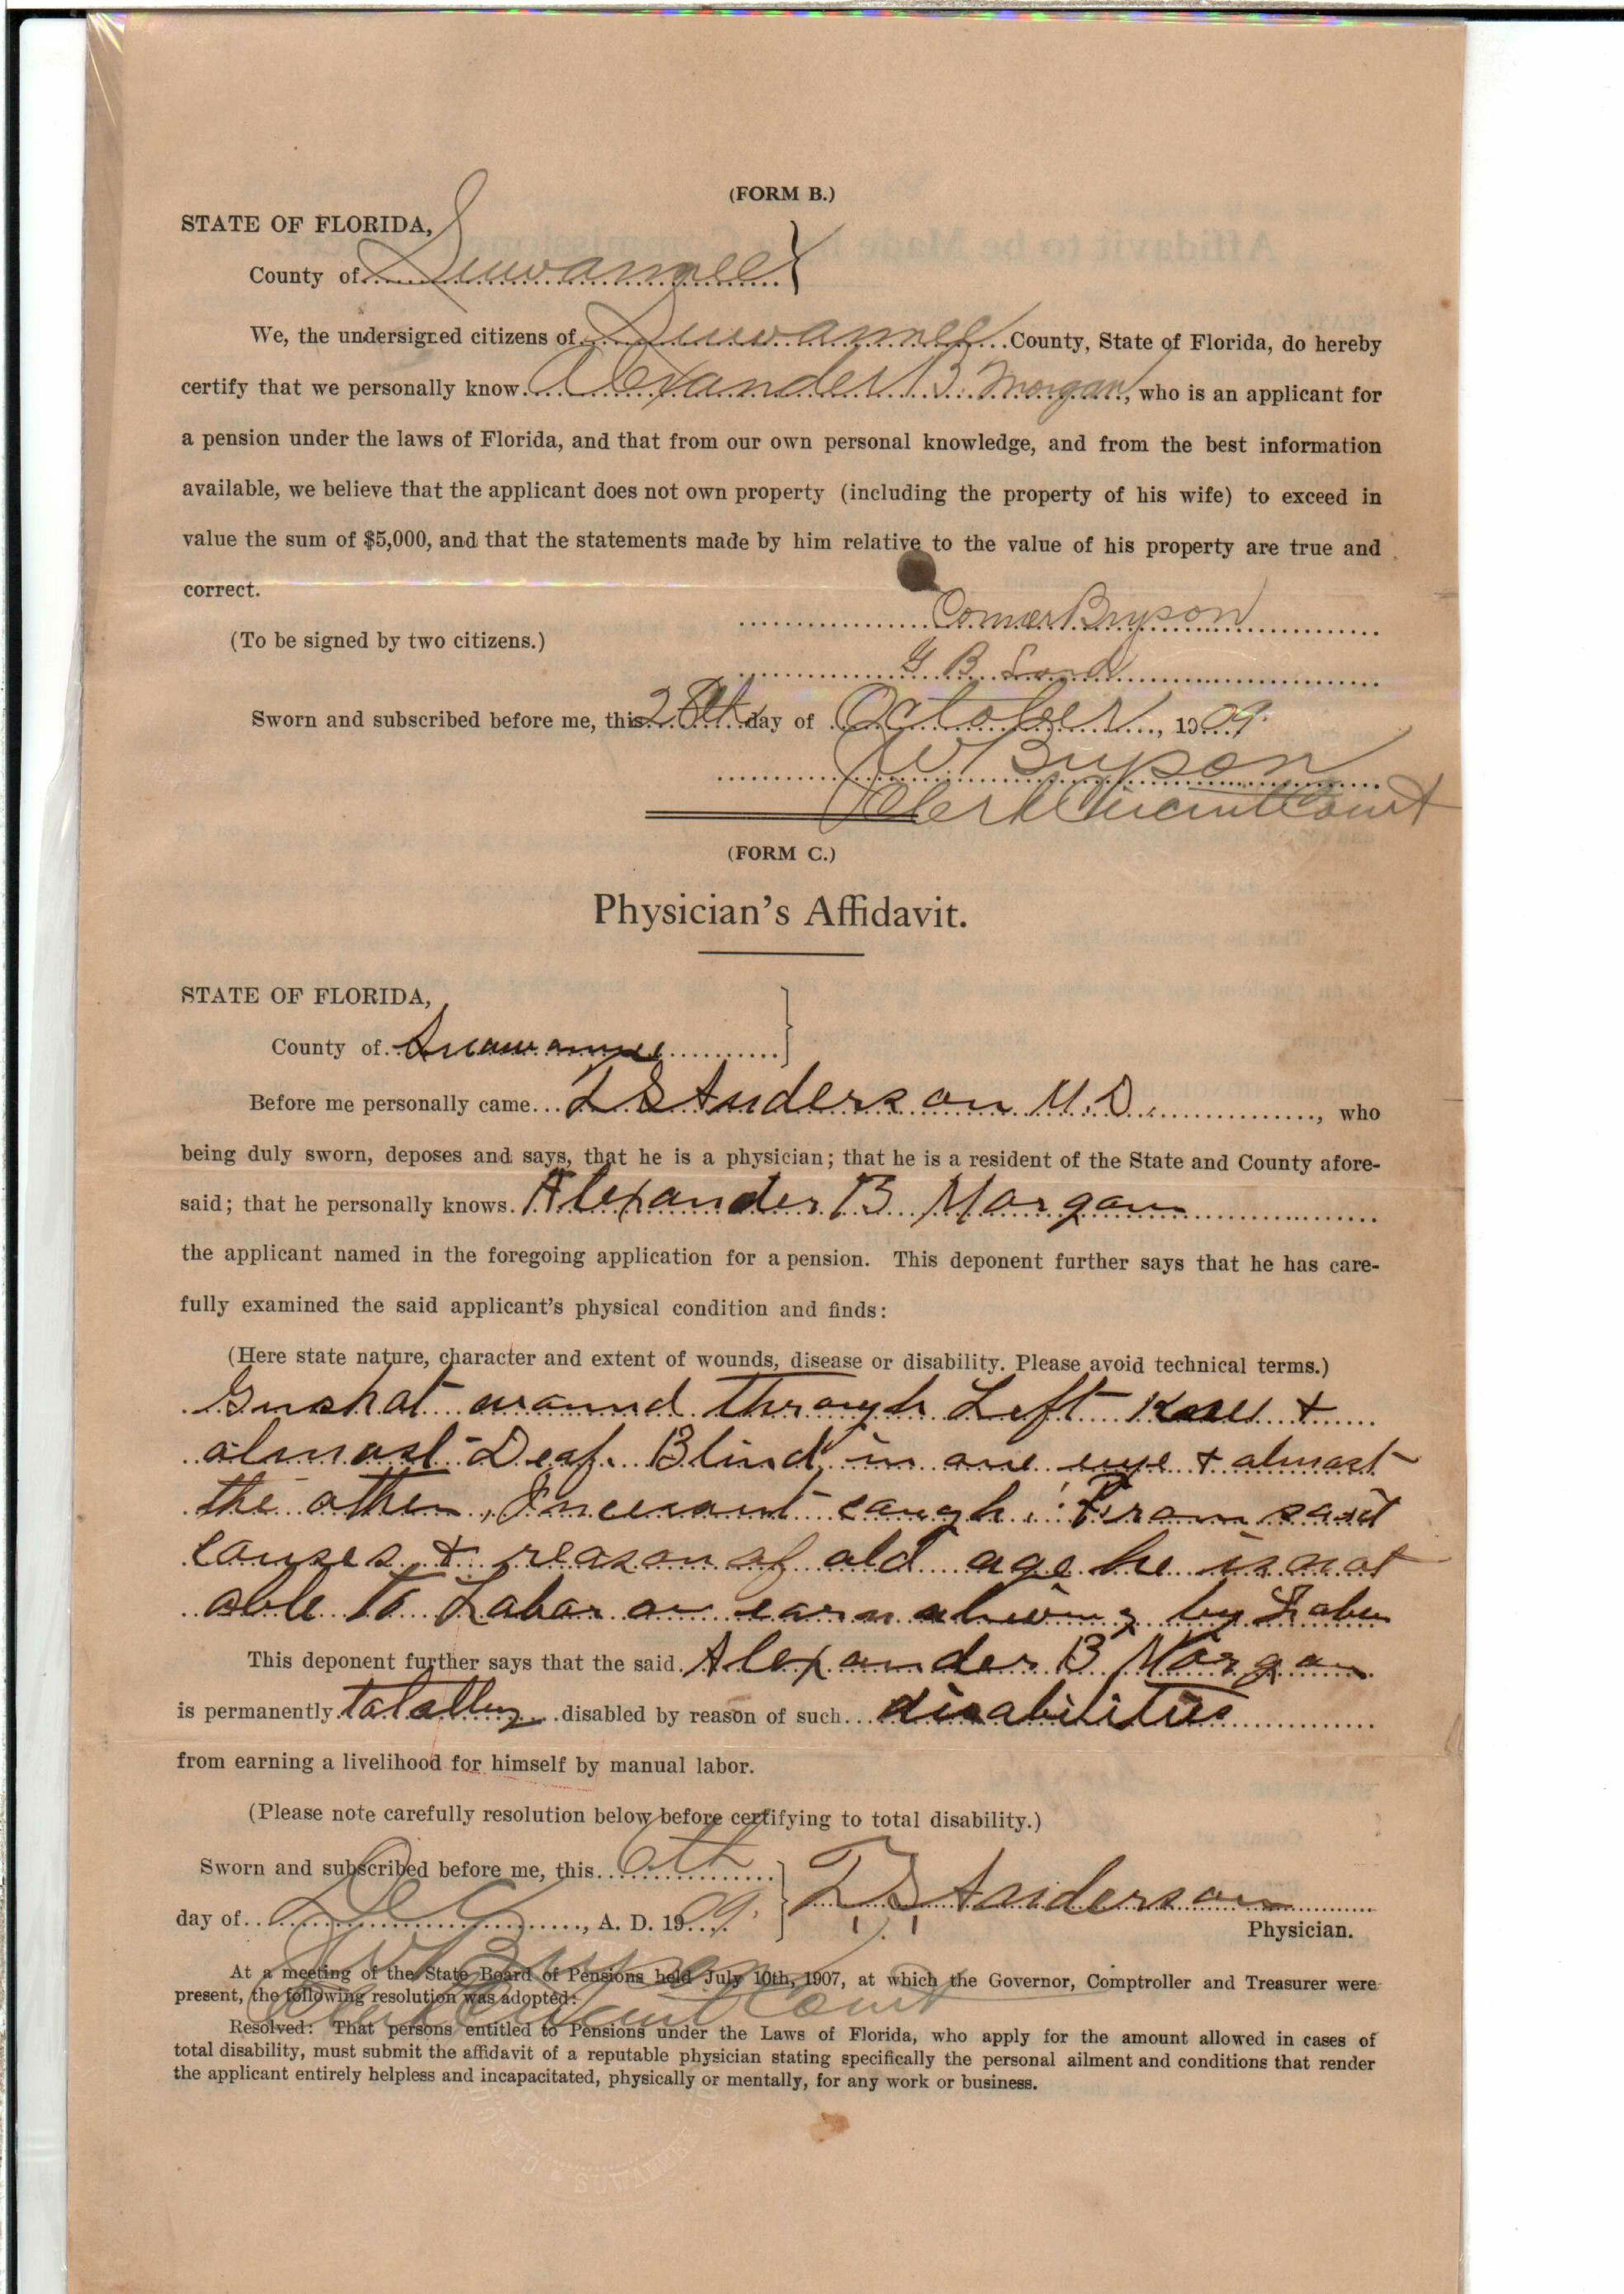 (FORM B.)
STATE OF FLORIDA,
County of Suwannee
We, the undersigned citizens of Suwannee County, State of Florida, do hereby
certify that we personally know Alexander B. Morgan, who is an applicant for
a pension under the laws of Florida, and that from our own personal knowledge, and from the best information
available, we believe that the applicant does not own property (including the property of his wife) to exceed in
value the sum of $5,000, and that the statements made by him relative to the value of his property are true and
correct.
Comer Bryson
(To be signed by two citizens.)
G B
Sworn and subscribed before me, this 28th day of October, 1909.
Bryson
Clerk Circuit Court
(FORM C.)
Physician's Affidavit.
STATE OF FLORIDA,
County of Suwannee
Before me personally came Anderson M.D., who
being duly sworn, deposes and says, that he is a physician; that he is a resident of the State and County afore-
said; that he personally knows Alexander B Morgan
the applicant named in the foregoing application for a pension. This deponent further says that he has care-
fully examined the said applicant's physical condition and finds:
(Here state nature, character and extent of wounds, disease or disability. Please avoid technical terms.)
Gunshot wound through Left Knee &
almost Deaf. Blind in one eye & almost
the other, Incesant cough. From said
causes & reason of old age he is not
able to Labor or earn a living by Labor
This deponent further says that the said Alexander B Morgan
is permanently totally disabled by reason of such disabilities
from earning a livelihood for himself by manual labor.
(Please note carefully resolution below before certifying to total disability.)
Sworn and subscribed before me, this 6th
day of Dec, A. D. 1909. Anderson
Physician.
Bryson
Clerk Circuit Court
At a meeting of the State Board of Pensions held July 10th, 1907, at which the Governor, Comptroller and Treasurer were
present, the following resolution was adopted:
Resolved: That persons entitled to Pensions under the Laws of Florida, who apply for the amount allowed in cases of
total disability, must submit the affidavit of a reputable physician stating specifically the personal ailment and conditions that render
the applicant entirely helpless and incapacitated, physically or mentally, for any work or business.